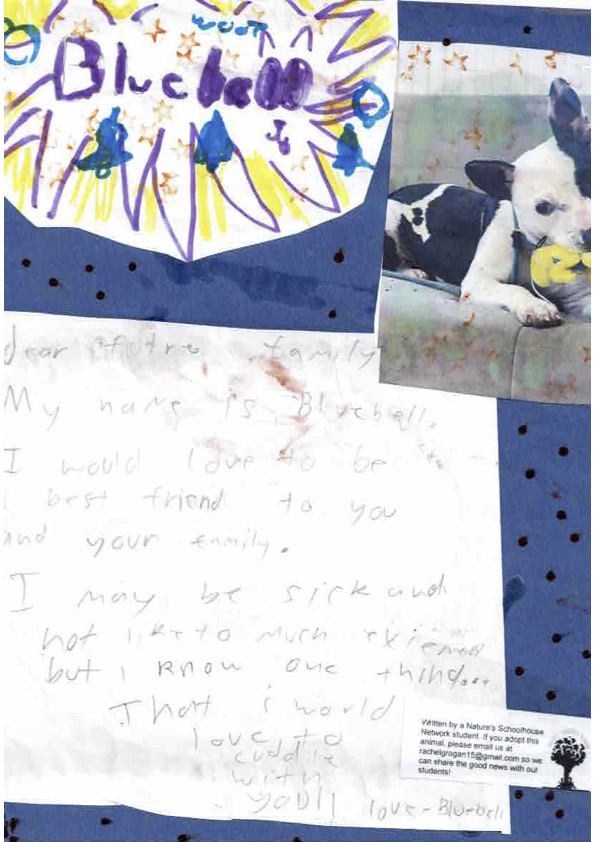 woof
Bluebell
dear futre family
My name is Bluebell.
I would love to be
a best friend to you
and your family.
I may be sick and
not like to much
but i know one thing...
That i world
love to
cuddle
with
you!! love-Bluebell
Written by a Nature's Schoolhouse
Network student. If you adopt this
animal, please email us at
rachelgrogan15@gmail.com so we
can share the good news with our
students!